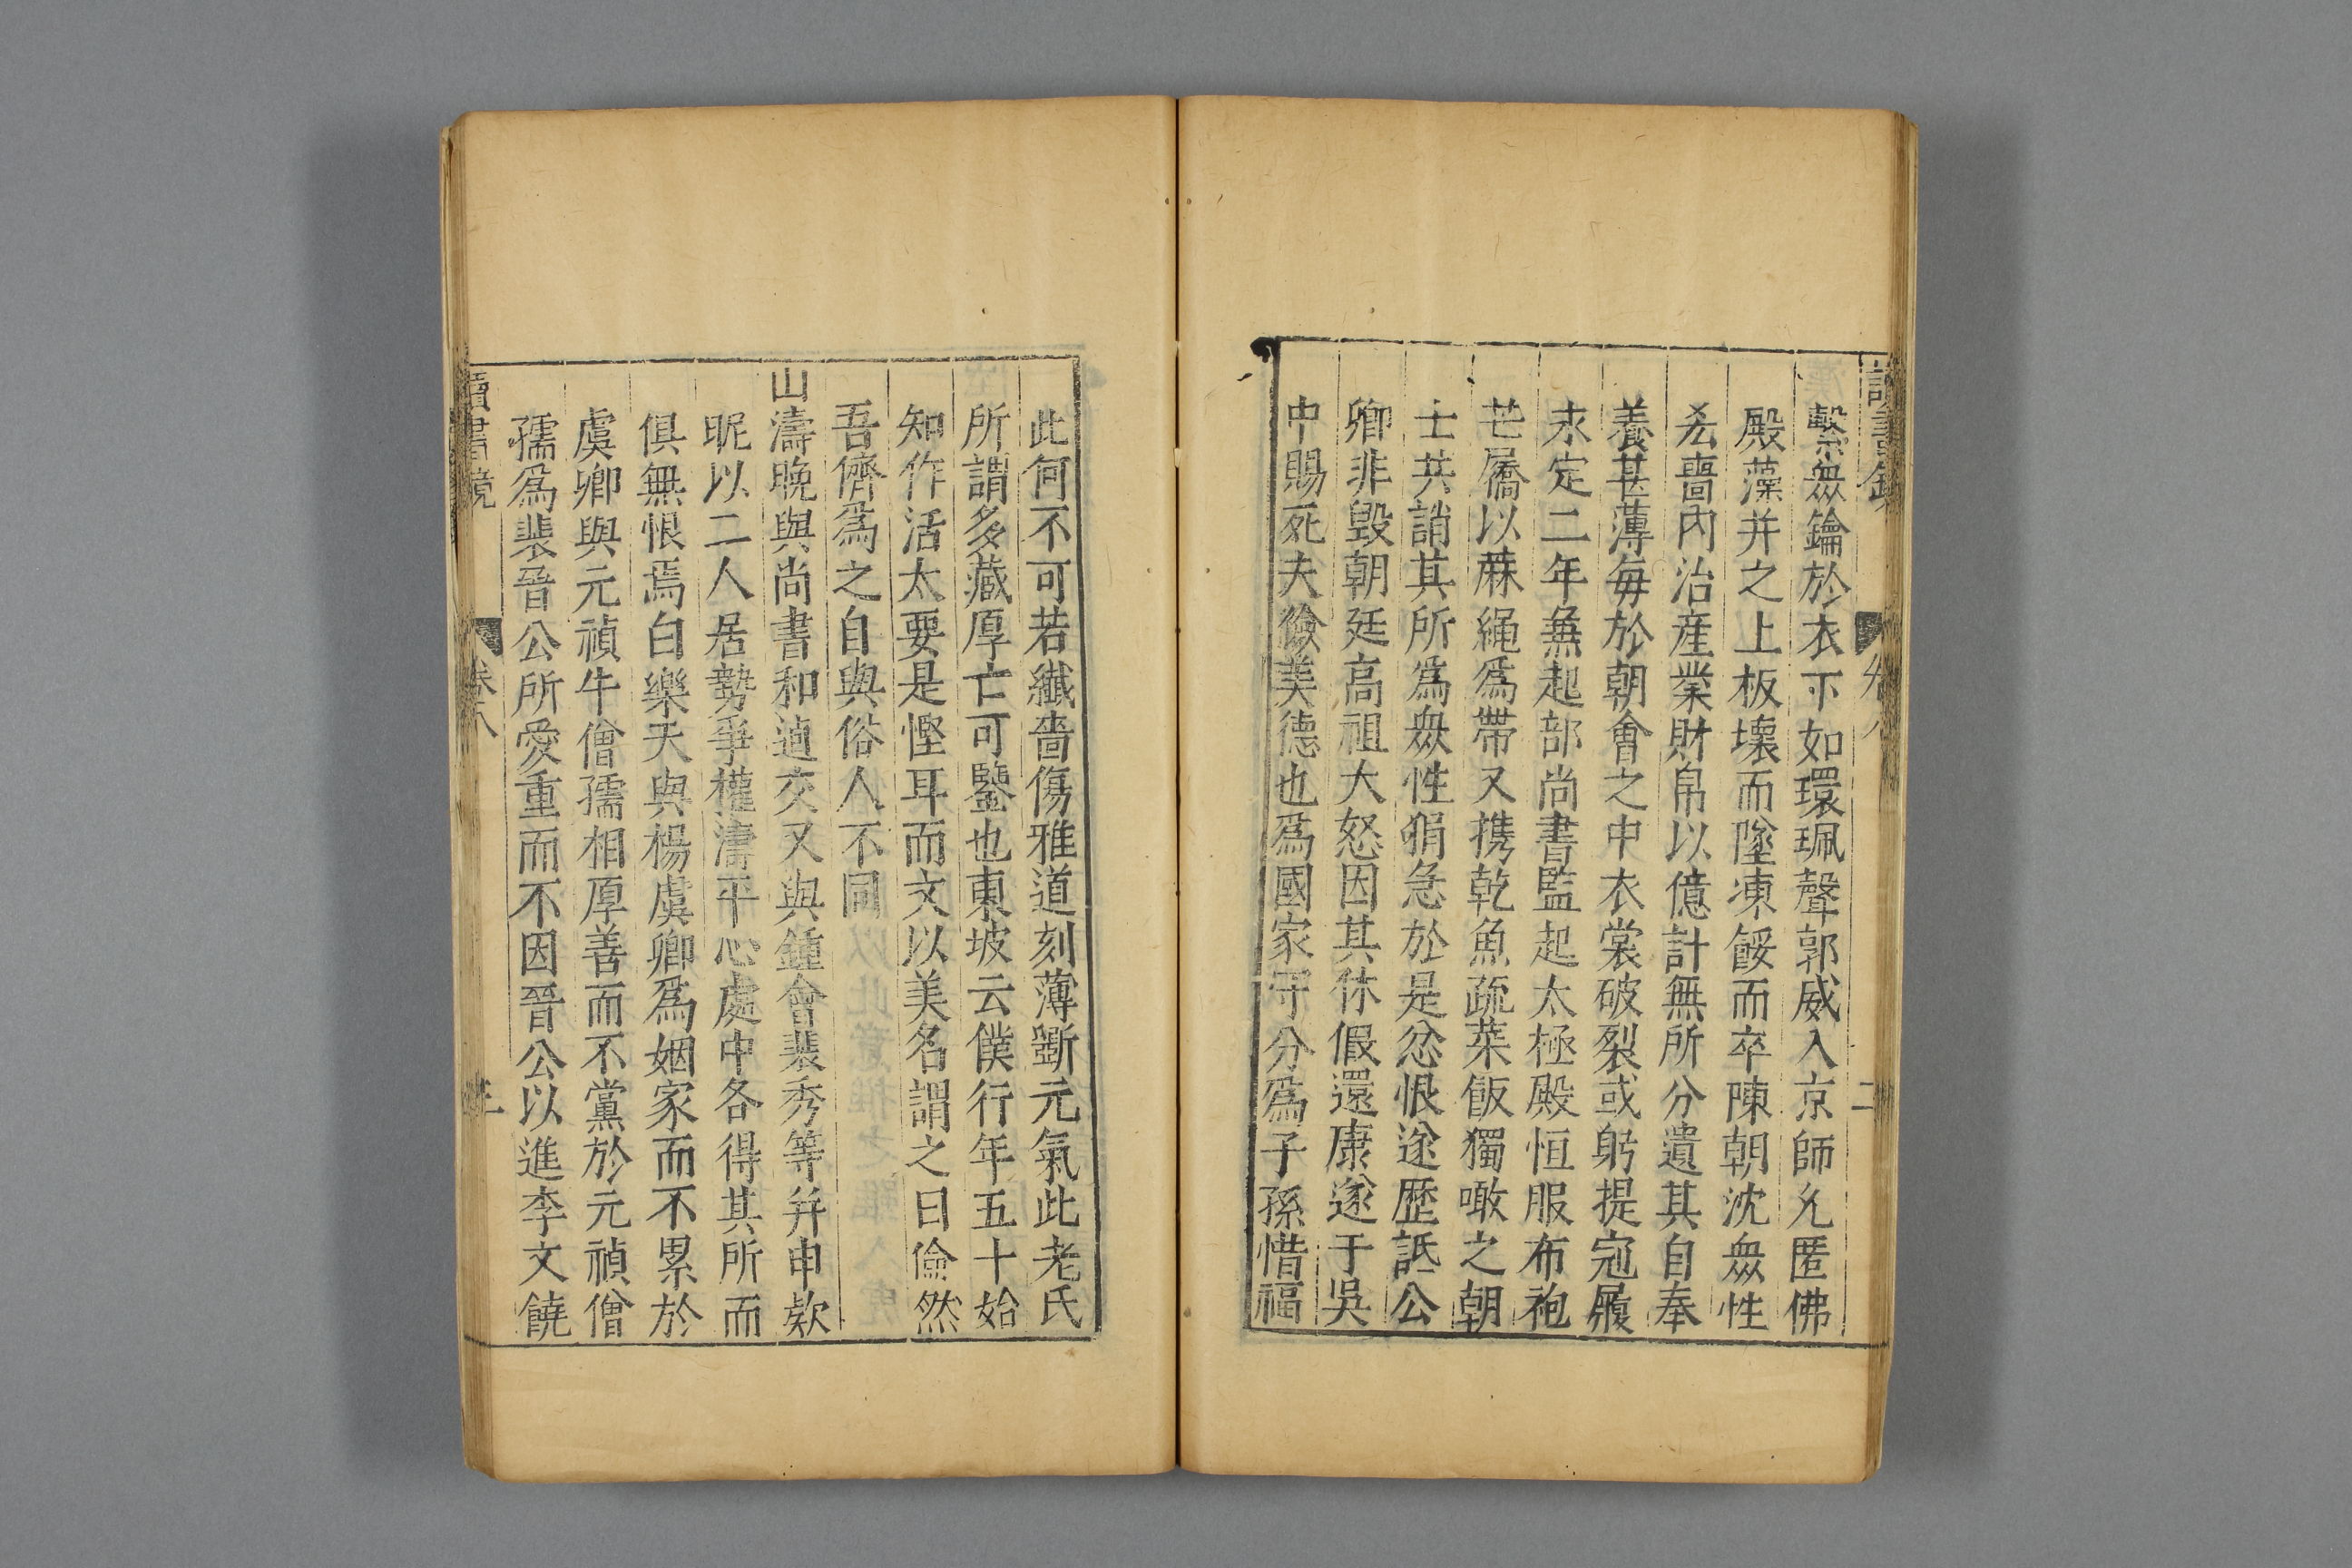 讀書鏡
卷八
二
繫衆鑰於衣下如環珮聲郭威入京師允匿佛
殿藻井之上板壞而墜凍餒而卒陳朝沈衆性
吝嗇內治産業財帛以億計無所分遺其自奉
養甚薄每於朝會之中衣裳破裂或躬提冠履
永定二年兼起部尚書監起太極殿恒服布袍
芒屩以蔴繩爲帶又携乾魚疏菜飯獨噉之朝
士共誚其所爲衆性狷急於是忿恨遂歷詆公
卿非毀朝廷高祖大怒因其休假還康遂于吳
中賜死夫儉美德也爲國家守分爲子孫惜福
此何不可若纎嗇傷雅道刻薄斵元氣此老氏
所謂多藏厚亡可鑒也東坡云僕行年五十始
知作活太要是慳耳而文以美名謂之曰儉然
吾儕爲之自與俗人不同
山濤晚與尚書和逌交又與鍾會裴秀等并申欵
昵以二人居勢爭權濤平心處中各得其所而
俱無恨焉白樂天與楊虞卿爲姻家而不累於
虞卿與元稹牛僧孺相厚善而不黨於元稹僧
孺爲裴晉公所愛重而不因晉公以進李文饒
讀書鏡
卷八
三